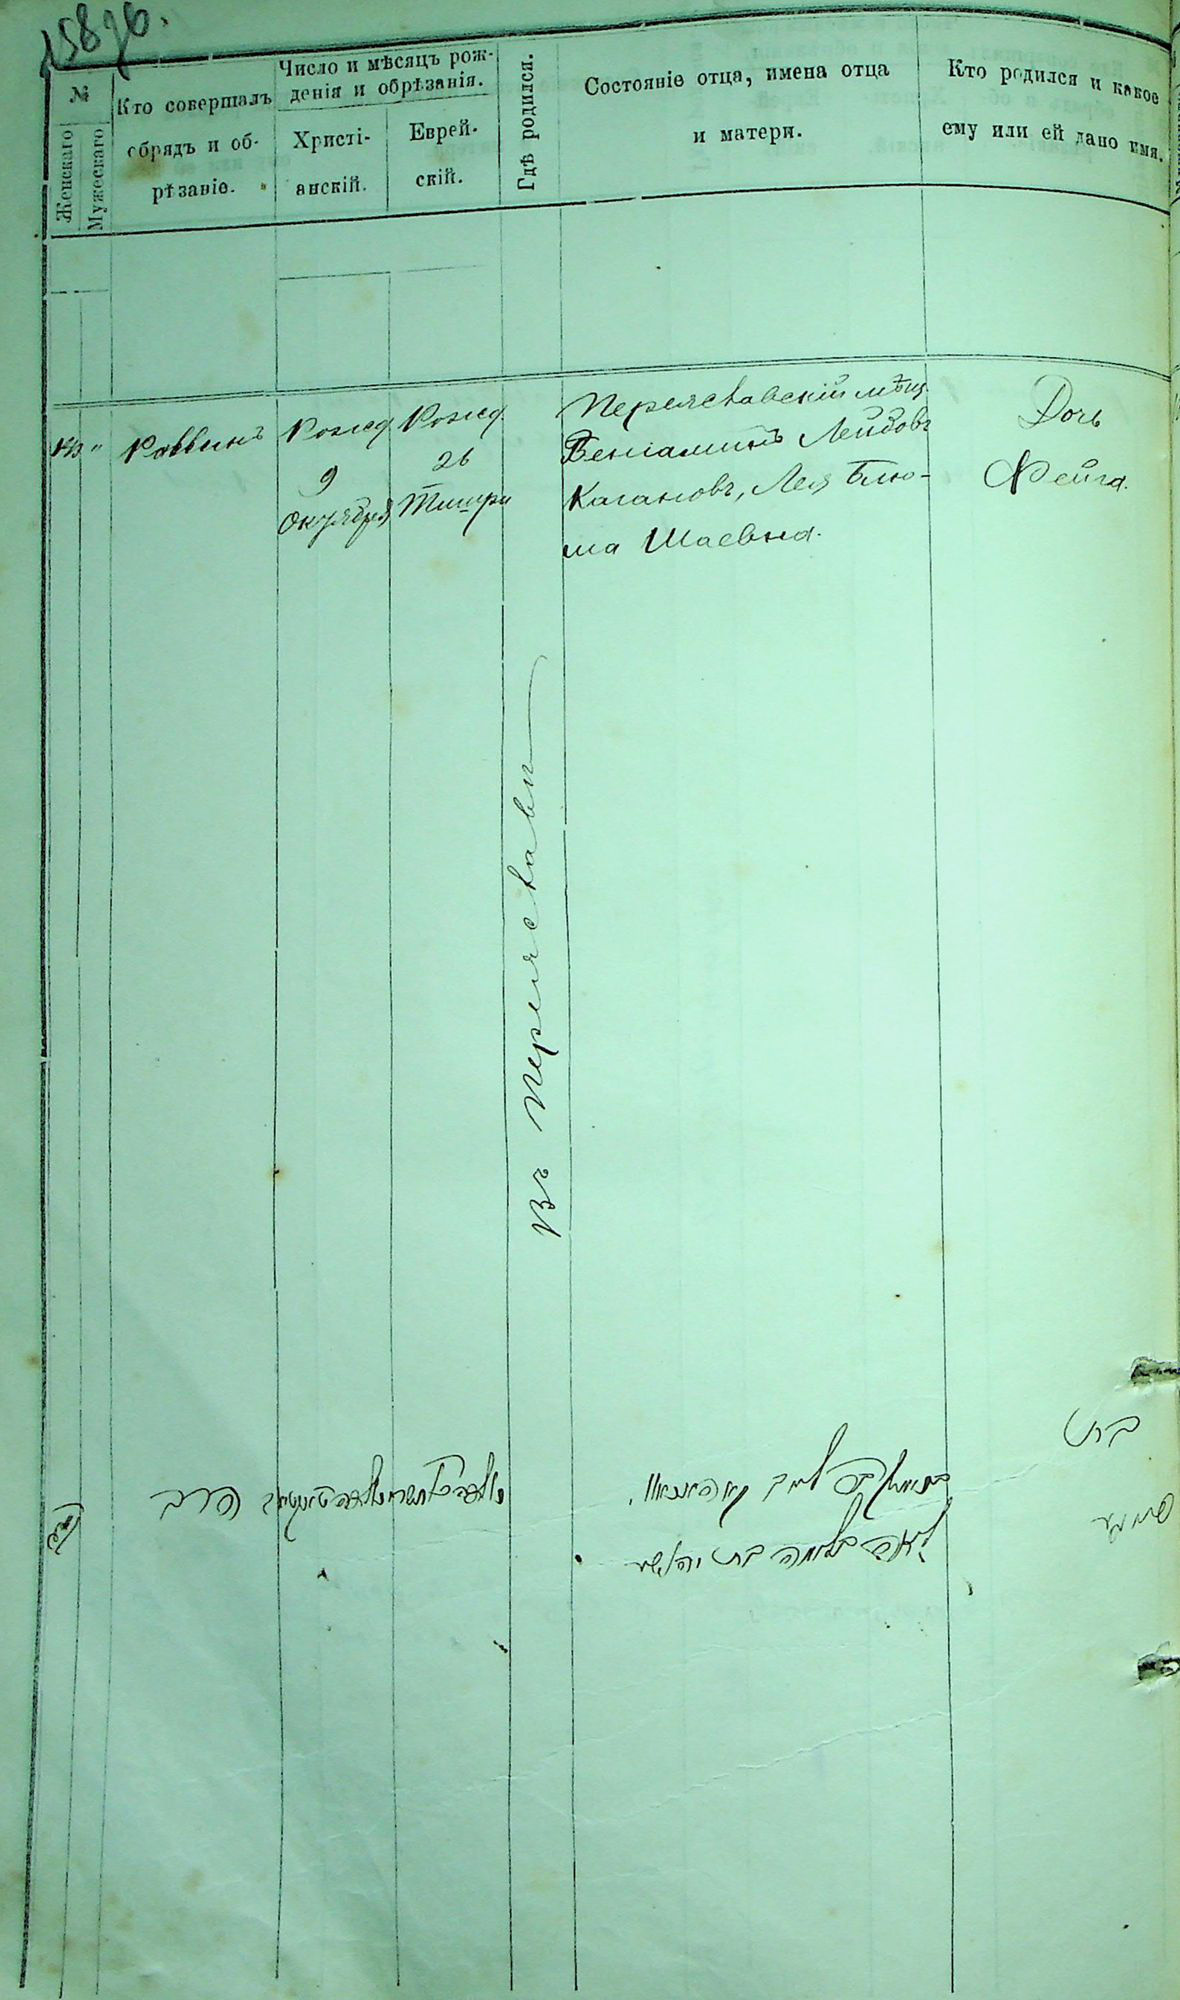 №
Женскаго
Мужескаго
Кто совершалъ
обрядъ и об-
рѣзаніе.
Число и мѣсяцъ рож-
денія и обрѣзанія.
Христі-
анскій.
Еврей-
скій.
Гдѣ родился.
Состояніе отца, имена отца
и матери.
Кто родился и какое
ему или ей дано имя.
Раввинъ
Рожд
9
Октября
Рожд
26
Тишри
Въ Переяславѣ
Переяславскій мѣщ.
Веніаминъ Лейбовъ
Кагановъ, Лея Блю-
ма Шаевна.
Дочь
Фейга.
הרב
לאה בלומה בת יהושע
בת